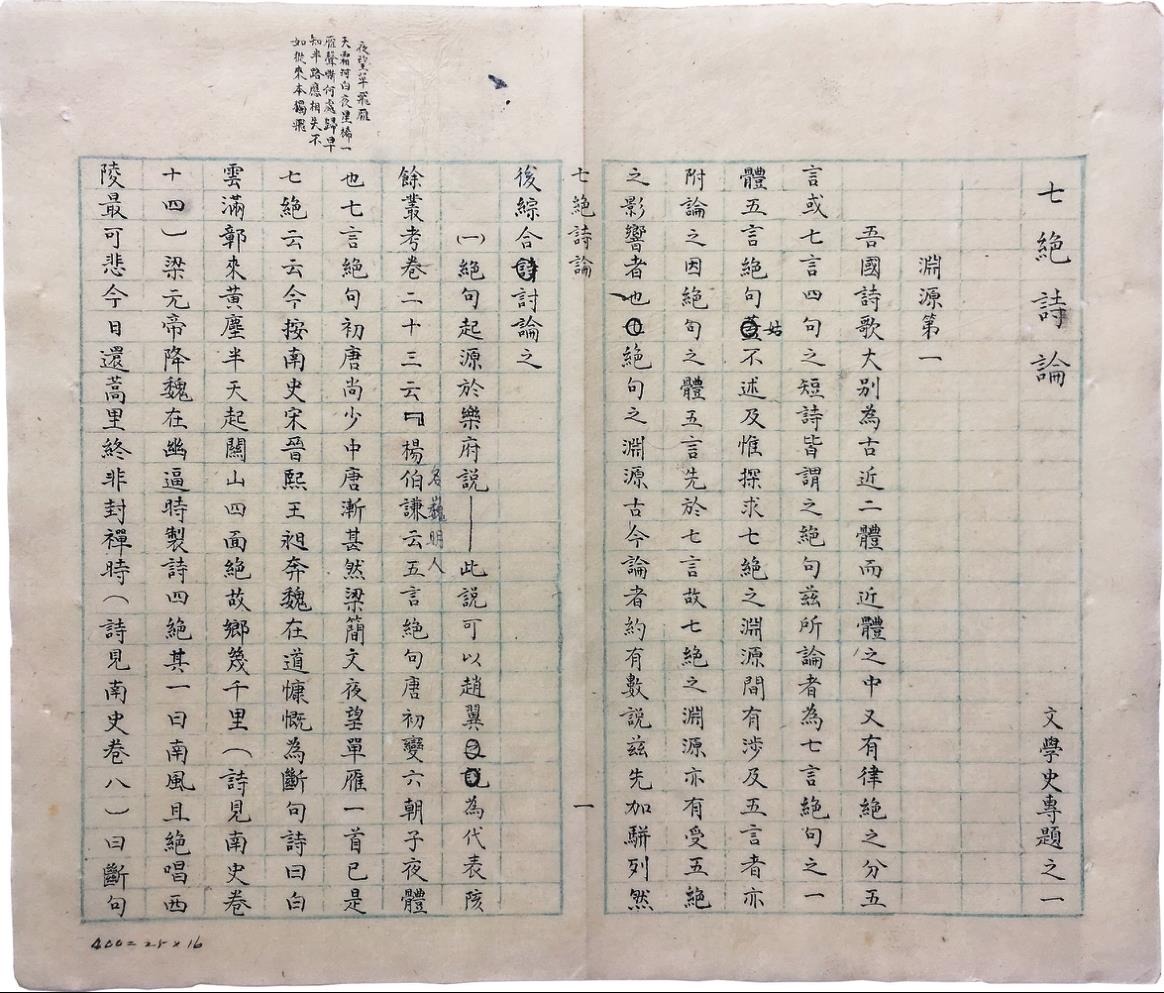 七絕詩論　文學史專題之一
淵源第一
吾國詩歌大別為古近二體而近體之中又有律絕之分五
言或七言四句之短詩皆謂之絕句茲所論者為七言絕句之一
體五言絕句姑不述及惟探求七絕之淵源間有涉及五言者亦
附論之因絕句之體五言先於七言故七絕之淵源亦有受五絕
之影響者也絕句之淵源古今論者約有數說茲先加駢列然
七絕詩論　一
後綜合討論之
(一)絕句起源於樂府說——此說可以趙翼為代表陔
餘叢考卷二十三云『楊伯謙云五言絕句唐初變六朝子夜體
名巍明人
也七言絕句初唐尚少中唐漸甚然梁簡文夜望單雁一首已是
七絕云云今按南史宋晉熙王昶奔魏在道慷慨為斷句詩曰白
雲滿鄣來黃塵半天起關山四面絕故鄉幾千里(詩見南史卷
十四)梁元帝降魏在幽逼時製詩四絕其一曰南風且絕唱西
陵最可悲今日還蒿里終非封禪時(詩見南史卷八)曰斷句
夜望單飛雁
天霜河白夜星稀一
雁聲嘶何處歸早
知半路應相失不
如從來本獨飛
400=25×16